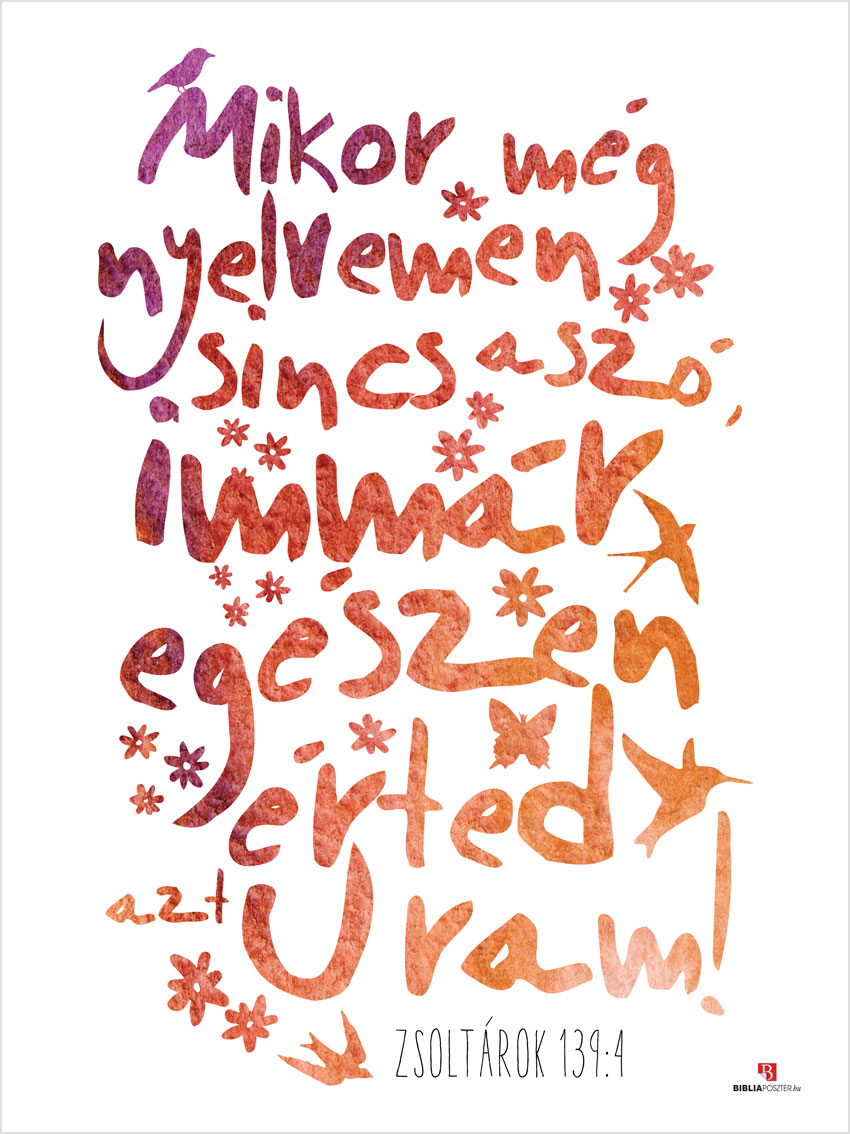 Mikor még
nyelvemen
sincs a szó,
immár
egészen
érted
azt Uram!
ZSOLTÁROK 139:4
BIBLIAPOSZTER.hu